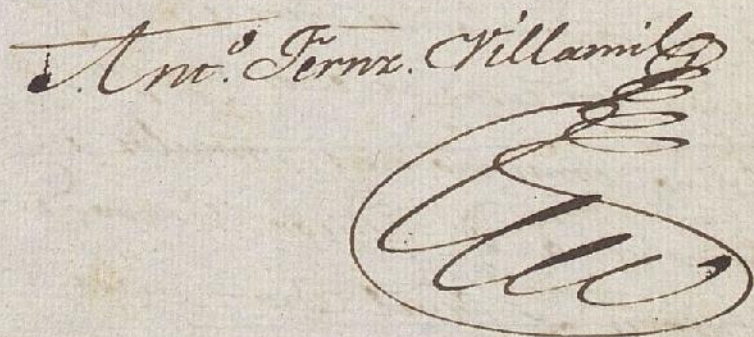 Ant.º Fernz. Villamil